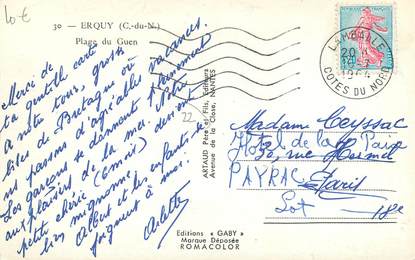 10€
30 - ERQUY (C.-du-N.)
Plage du Guen
LAMBALLE
20 H
18-7
COTES DU NORD
Merci de
ta gentille carte
A notre tour, gros
bises de Bretagne où
nous passons d'agréables vacances.
Les garçons se donnent pleinement
aux plaisirs de la mer. Notre
petite chérie devient
bien mignonne.
Albert et les enfants se
joignent à moi.
Arlette
22
ARTAUD Père et Fils, Editeurs
Avenue de la Close, NANTES
Madame Ceyssac
Hôtel de la Paix
30, rue Hermel
PAYRAC
Paris
Lot
18e
Editions "GABY"
Marque Déposée
ROMACOLOR